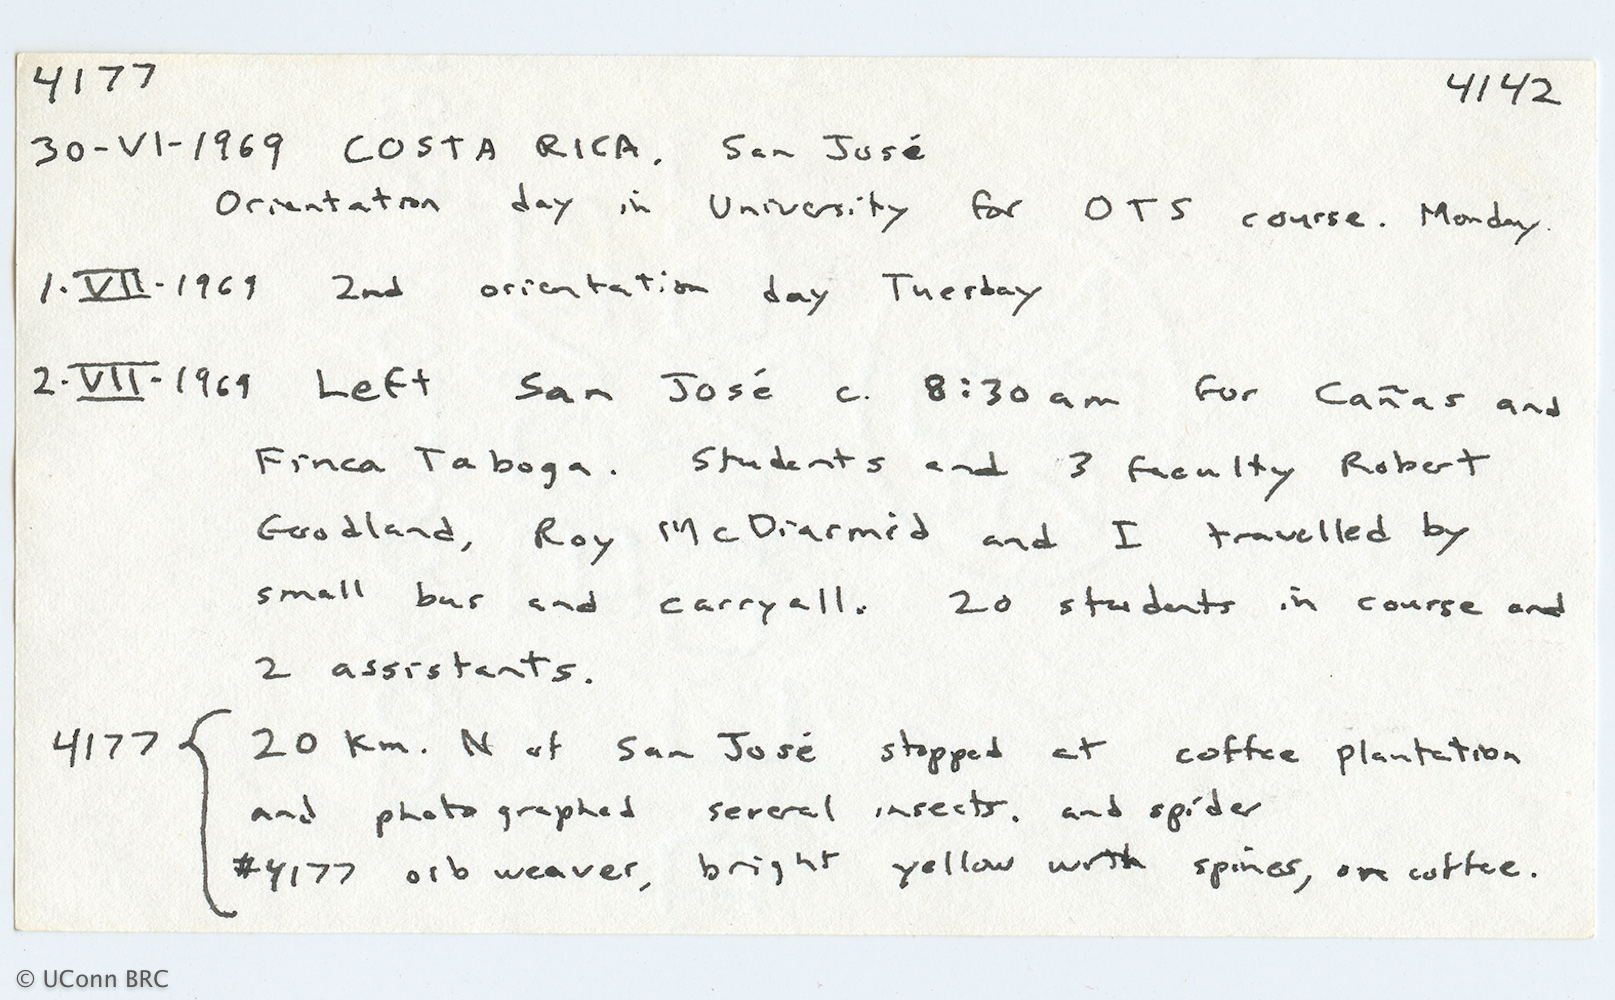 4177 4142
30-VI-1969 COSTA RICA. San José
Orientation day in University for OTS course. Monday.
1.VII-1969 2nd orientation day Tuesday
2.VII-1969 Left San José c. 8:30 am for Cañas and
Finca Taboga. Students and 3 faculty Robert
Goodland, Roy McDiarmid and I travelled by
small bus and carryall. 20 students in course and
2 assistants.
4177 { 20 Km. N of San José stopped at coffee plantation
and photographed several insects. and spider
#4177 orb weaver, bright yellow with spines, on coffee.
© UConn BRC